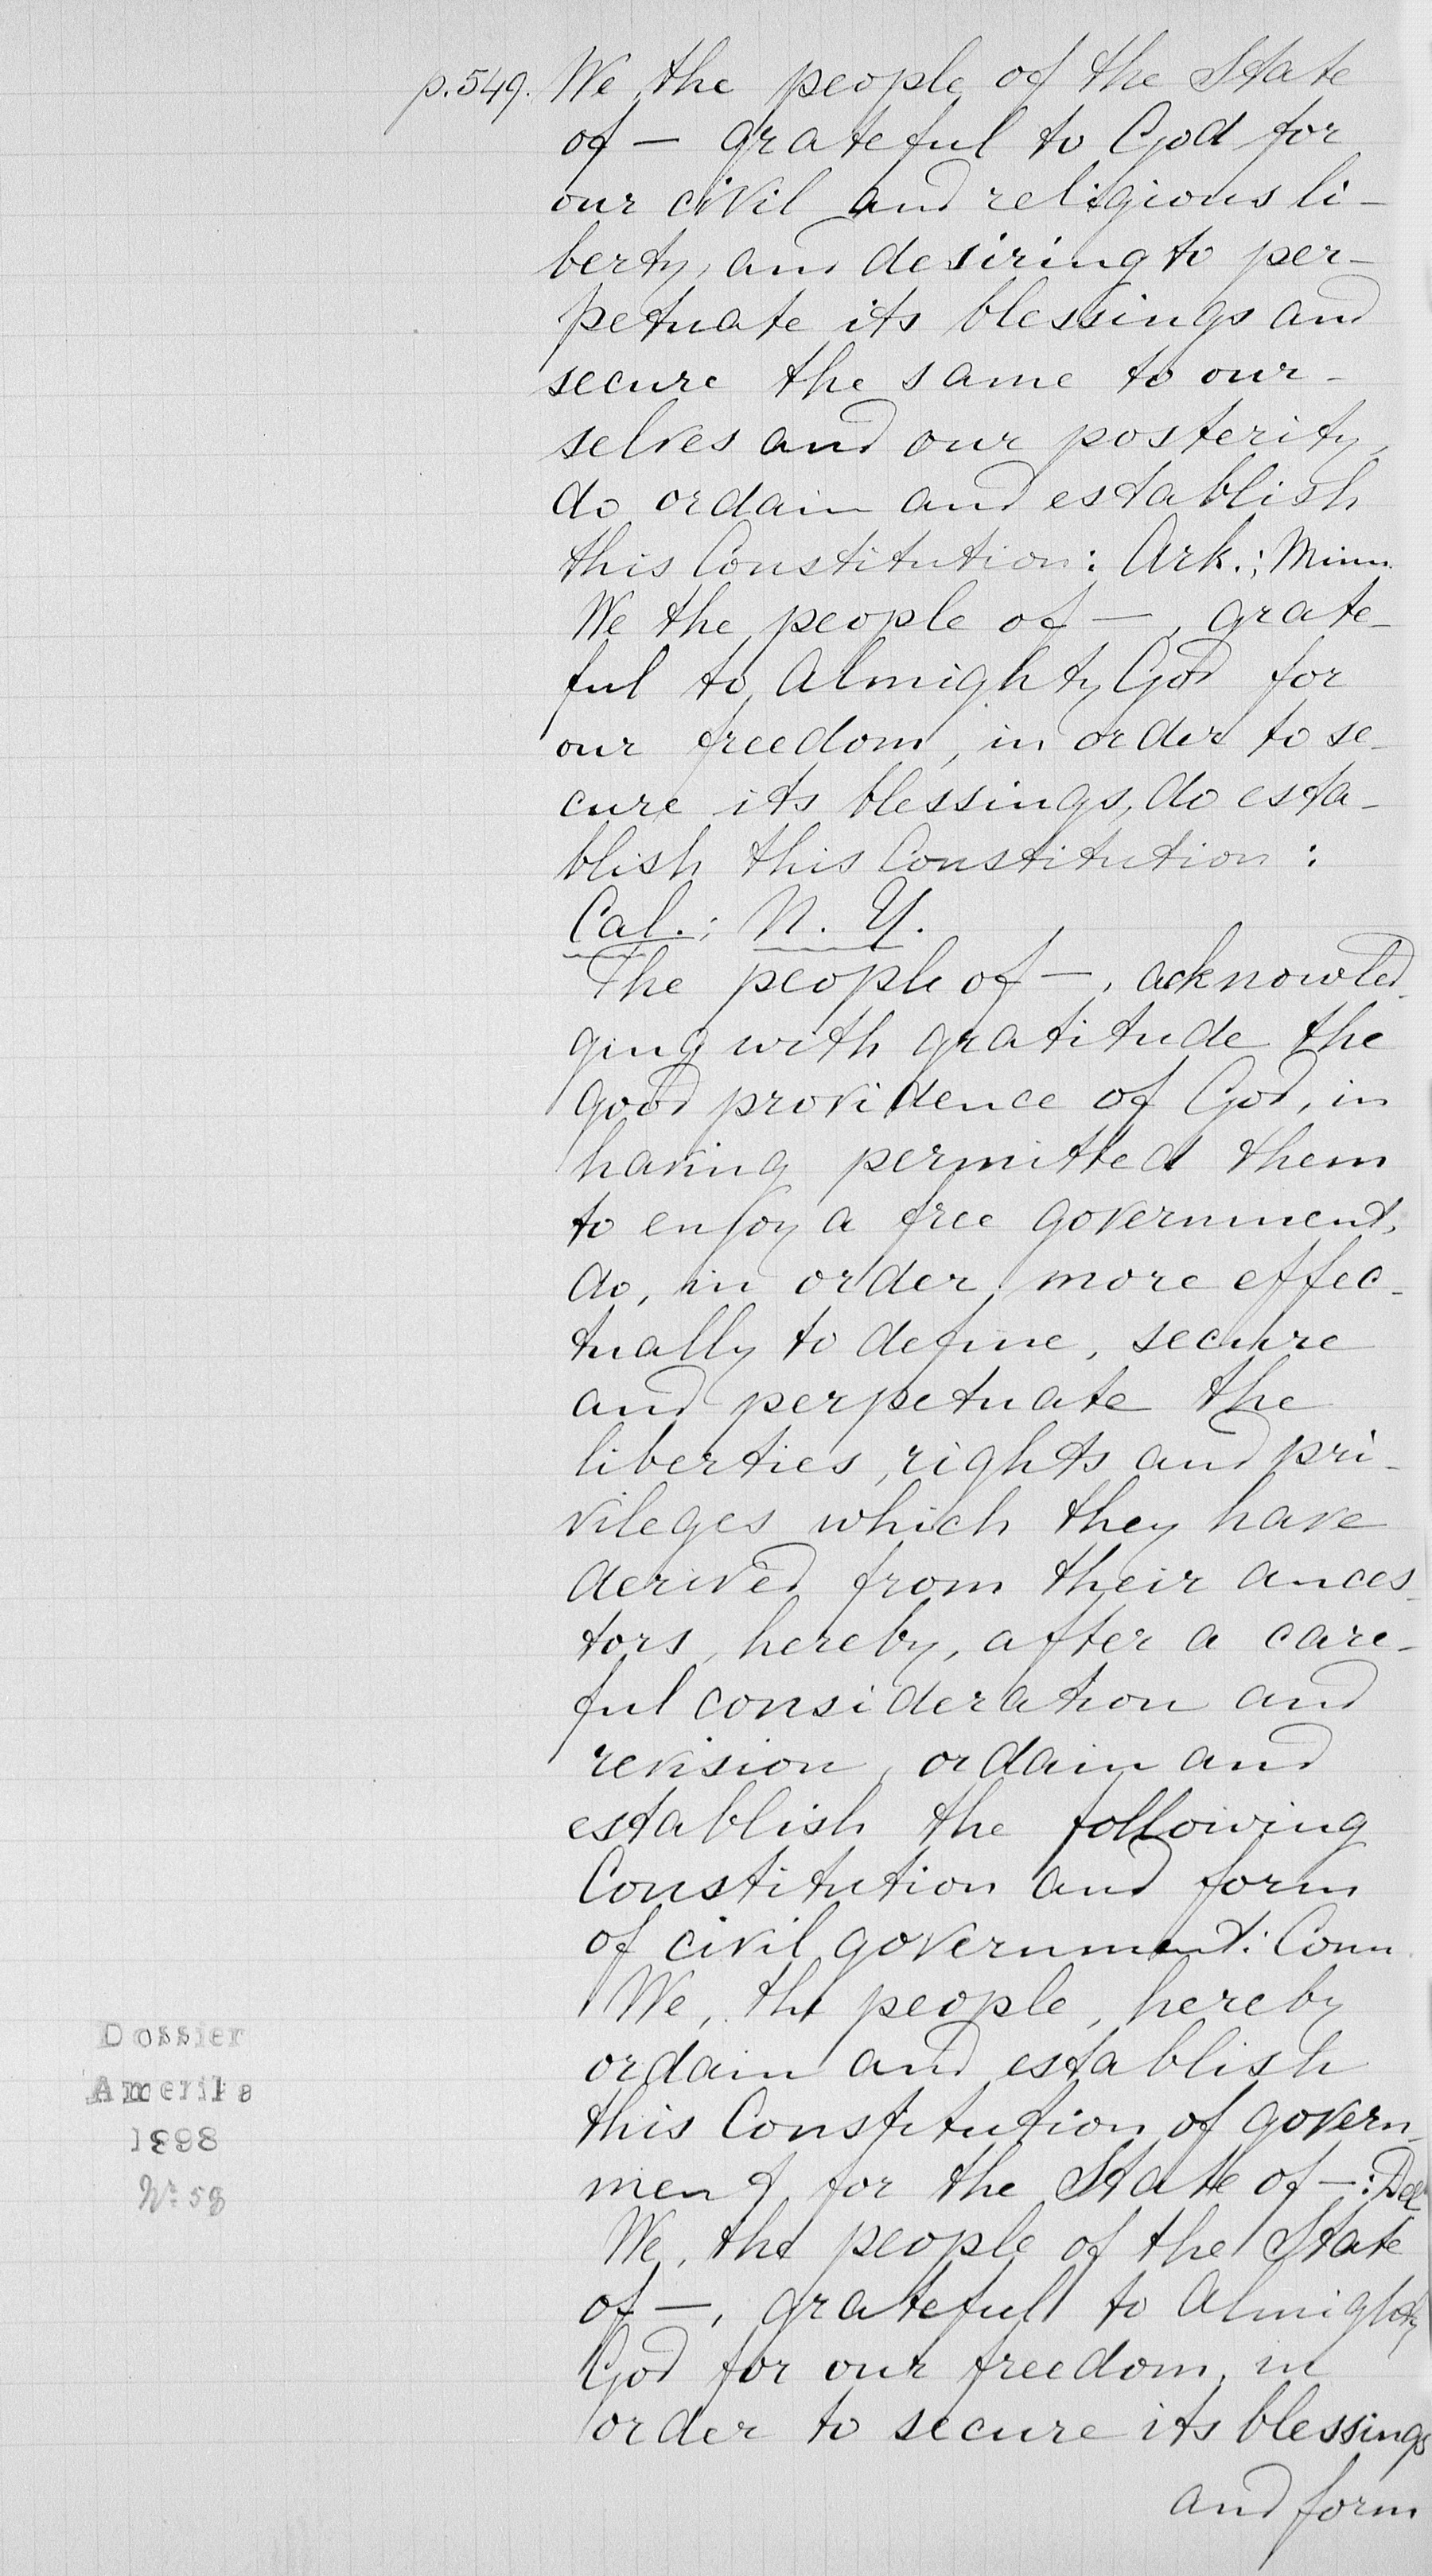 p.549. We the people of the State
of — grateful to God for
our civil and religious li-
berty, and desiring to per-
petuate its blessings and
secure the same to our-
selves and our posterity,
do ordain and establish
this Constitution: Ark.; Minn.
We the people of —, grate-
ful to Almighty God for
our freedom, in order to se-
cure its blessings, do esta-
blish this Constitution:
Cal.; N. Y.
The people of —, acknowled-
ging with gratitude the
good providence of God, in
having permitted them
to enjoy a free government,
do, in order more effec-
tually to define, secure
and perpetuate the
liberties, rights and pri-
vileges which they have
derived from their ances-
tors, hereby, after a care-
ful consideration and
revision, ordain and
establish the following
Constitution and form
of civil government: Conn.
We, the people, hereby
ordain and establish
this Constitution of govern-
ment for the State of —: Del.
We, the people of the State
of —, grateful to Almighty
God for our freedom, in
order to secure its blessings
and form
Dossier
Amerika
1898
No. 58